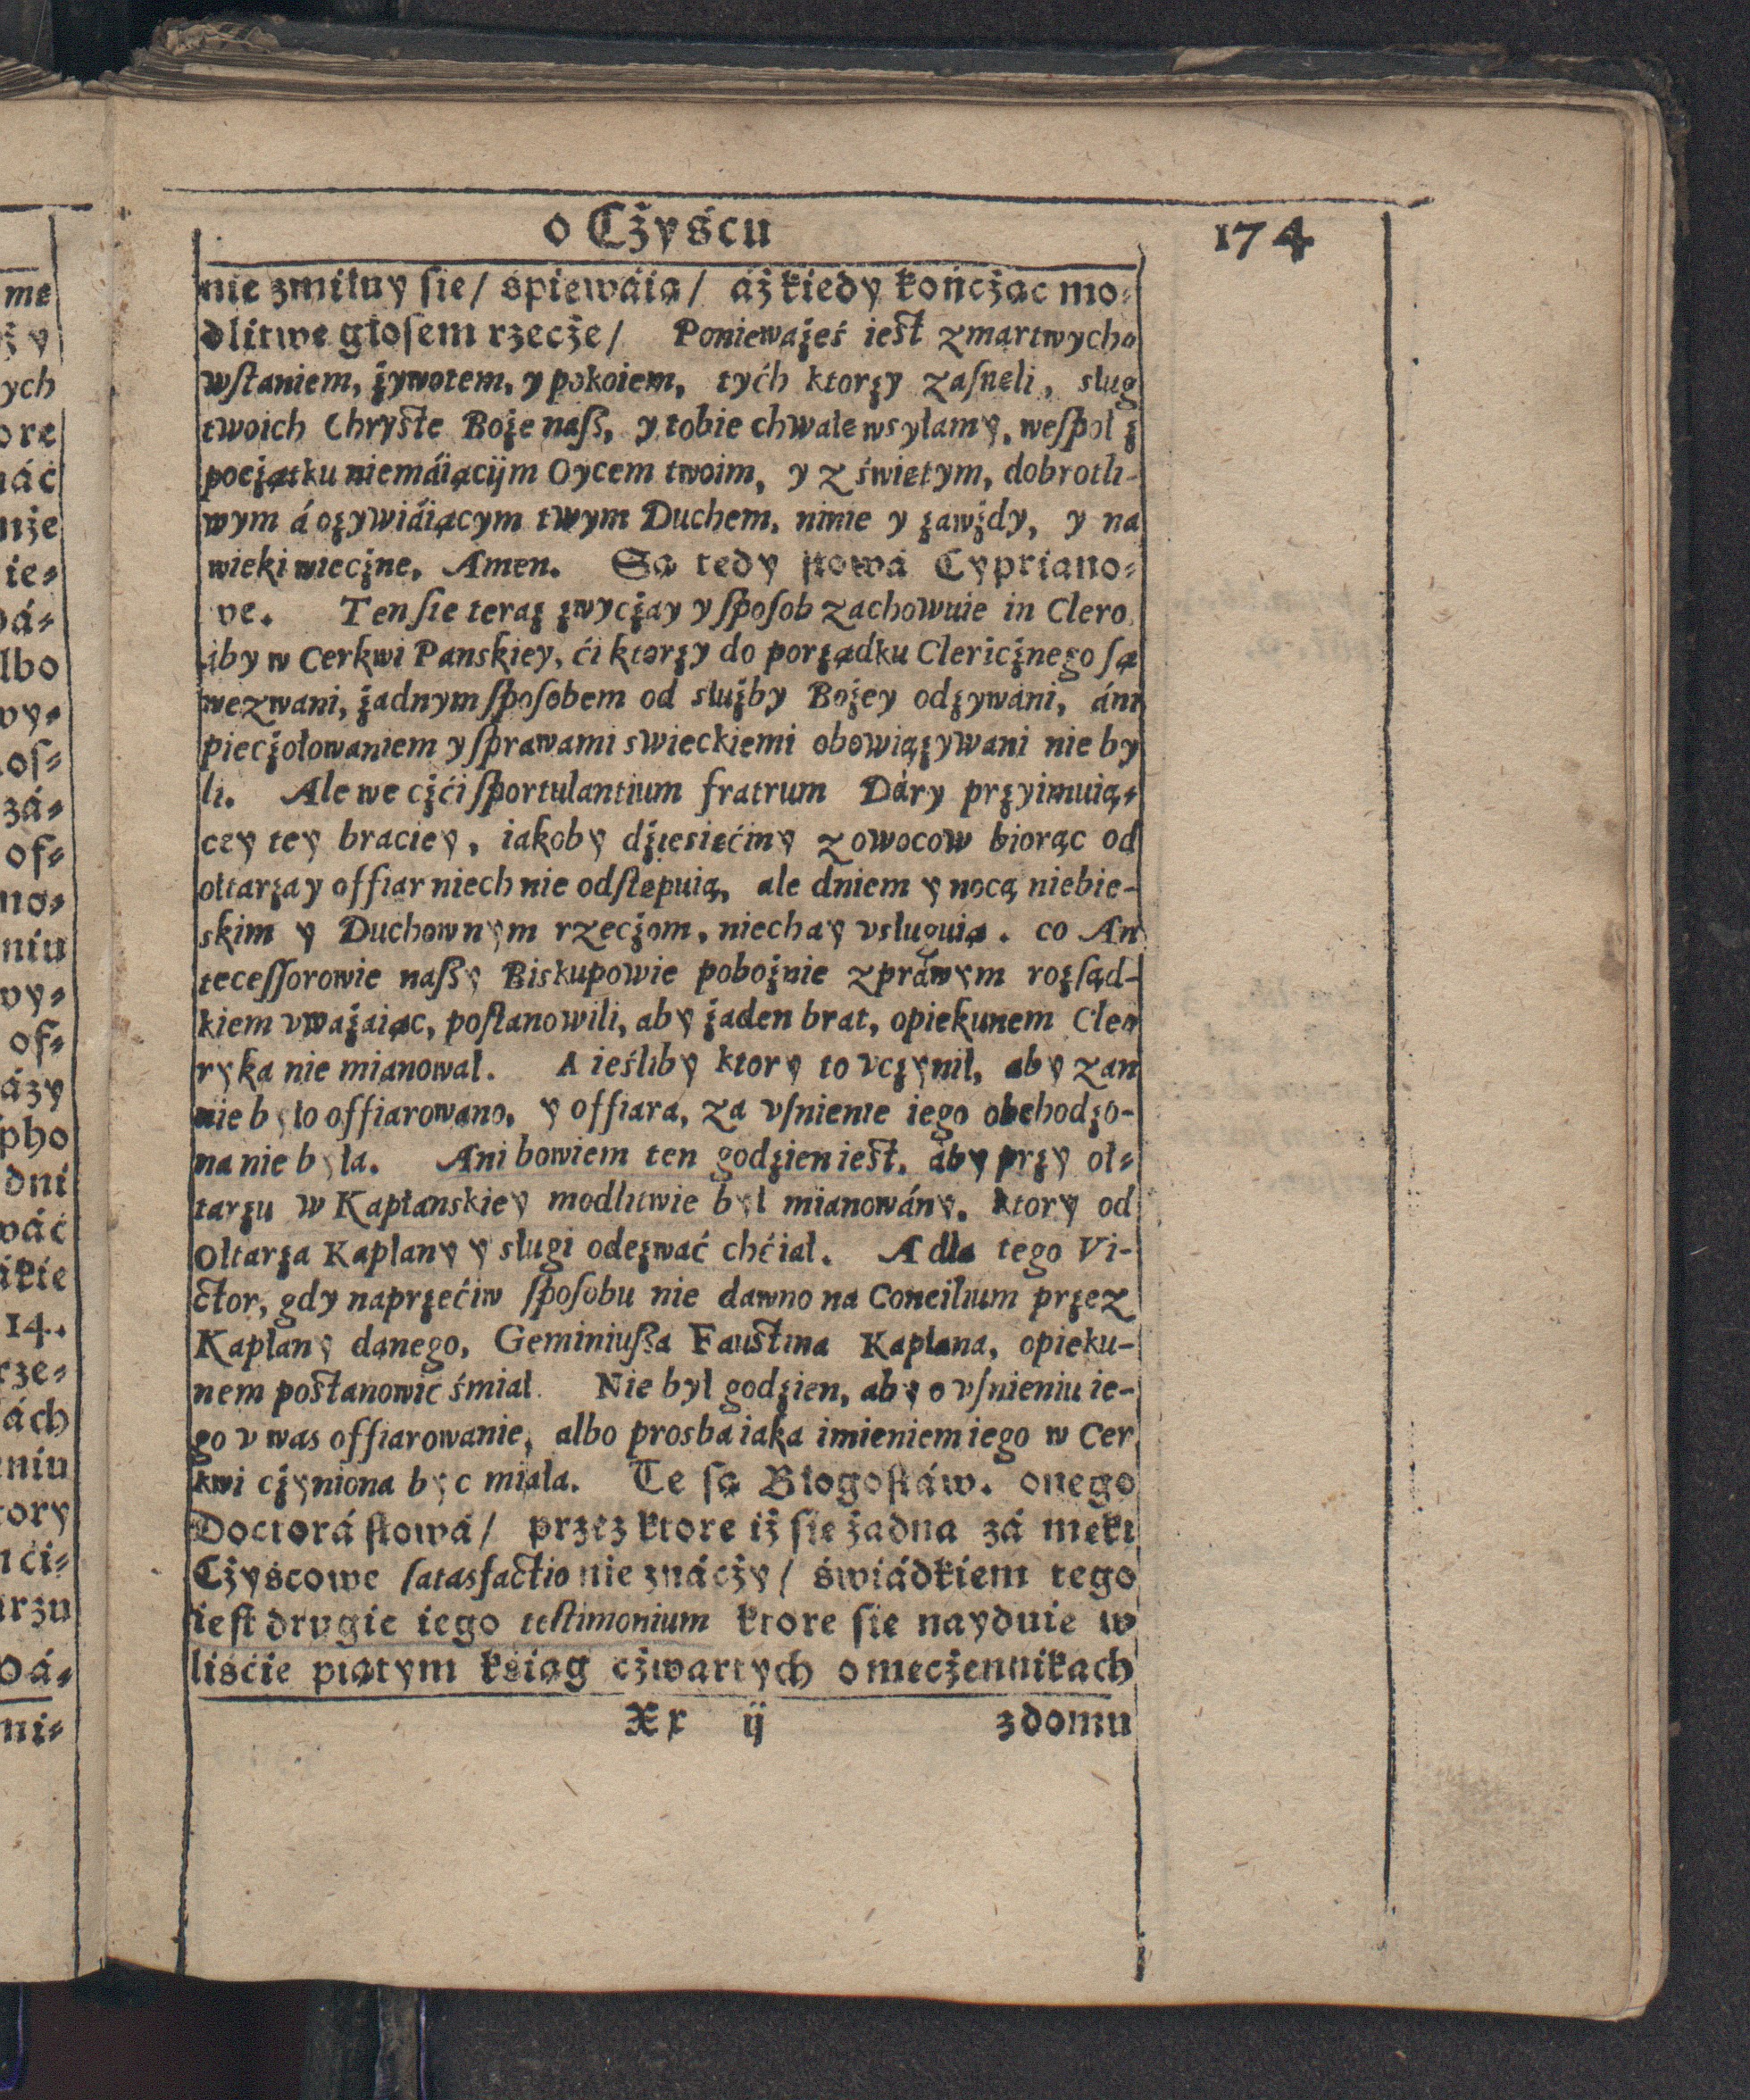 o Cżyścu 174
nie zmiłuy ſie / śpiewáią / áż kiedy kończżąc mo-
dlitwę głoſem rzecże / Poniewáżeś ieſt zmartwycho
wſtaniem, żywotem, y pokoiem, tyćh ktorzy zaſneli, sług
twoich Chryſte Boże naß, y tobie chwałe wsyłamy, weſpoł z
początku niemáiącijm Oycem twoim, y z świetym, dobrotli-
wym á ożywiáiącym twym Duchem, ninie y zawżdy, y na
wieki wieczne, Amen. Są tedy słowá Cypriano-
ve. Ten ſie teraz zwyczay y ſpoſob zachowuie in Clero
áby w Cerkwi Panskiey, ći ktorzy do porządku Clericznego ſą
wezwani, żadnym ſpoſobem od służby Bożey odzywáni, áni
pieczołowaniem y ſprawami swieckiemi obowiązywani nie by
li. Ale we czći ſportulantium fratrum Dáry przyimuią-
cey tey braciey, iakoby dżiesiećiny z owocow biorąc od
ołtarza y offiar niech nie odſtepuią, ale dniem y nocą niebie-
skim y Duchownym rzeczom, niechay vsługuią. co An
teceſſorowie naßy Biskupowie pobożnie z prawym rozſąd-
kiem vważaiąc, poſtanowili, aby żaden brat, opiekunem Cle
ryka nie mianował. A ieśliby ktory to vczynił, aby zan
nie było offiarowano, y offiara, za vſnienie iego obchodzo-
na nie była. Ani bowiem ten godzien ieſt, aby przy oł-
tarzu w Kapłanskiey modlitwie był mianowány, ktory od
Ołtarza Kapłany y sługi odezwać chćiał. A dla tego Vi-
ctor, gdy naprzećiw ſpoſobu nie dawno na Concilium przez
Kapłany danego, Geminiußa Fauſtina Kapłana, opieku-
nem poſtanowić śmiał. Nie był godzien, aby o vſnieniu ie-
go v was offiarowanie, albo prosba iaka imieniem iego w Cer
kwi cżyniona byc miała. Te są Błogosłáw. onego
Doctorá słowá / przez ktore iż ſie żadna zá meki
Cżyścowe ſatasfactio nie znácży / świádkiem tego
ieſt drugie iego teſtimonium ktore ſie nayduie w
liśćie piątym ksiąg cżwartych o mecżennikach
Xx ij zdomu